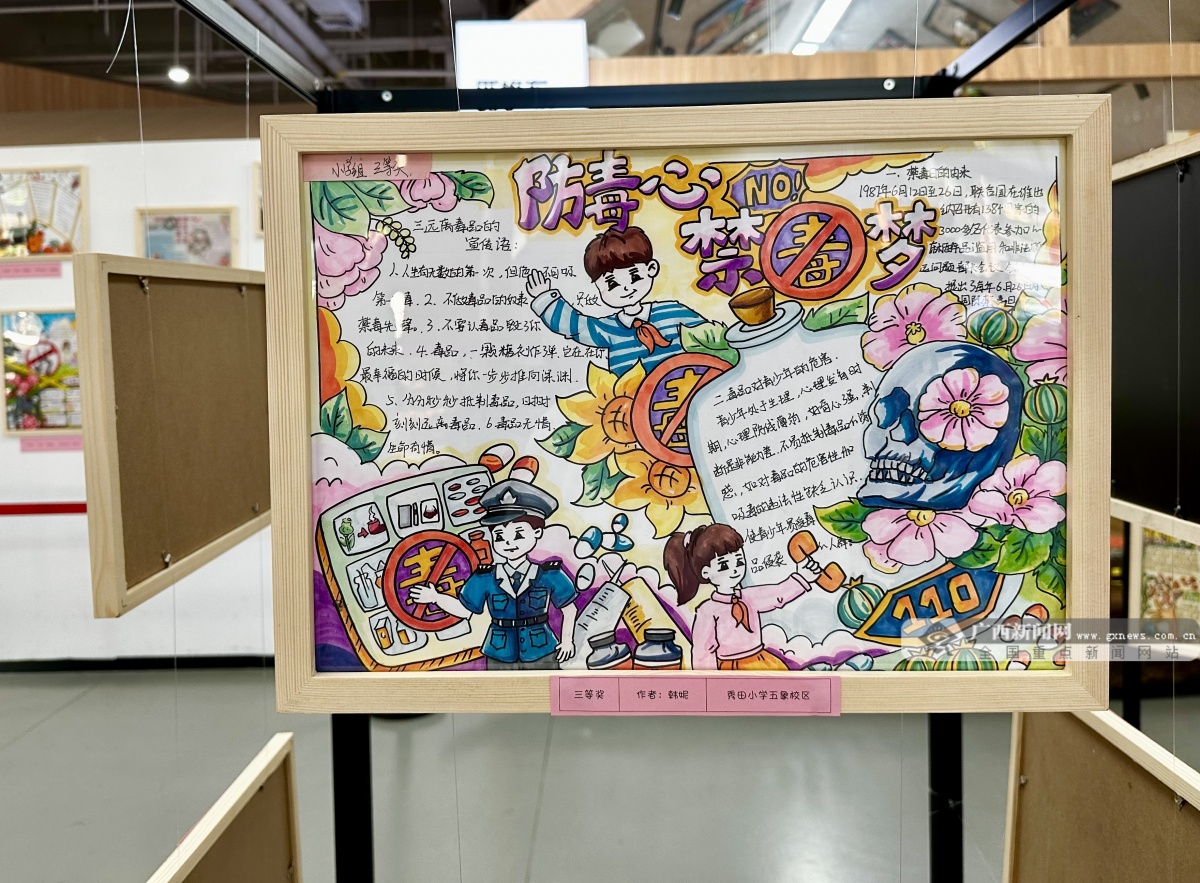 小学组 三等奖.
防毒·心
NO!
禁毒梦
一、禁毒日的由来
1987年6月12日至26日,联合国在维也
纳召开有138个国的
3000多名代表参加
三远离毒品的
宣传语:
1.人生有无数的第一次,但
第一毒.2.不做毒品的奴隶
禁毒先锋.3.不要让毒品毁了你
的未来.4.毒品,一颗糖衣炸弹,它在在你
最幸福的时候,将你一步步推向深渊.
5.分分秒秒抵制毒品,时时
刻刻远离毒品.6.毒品无情,
生命有情。
二、毒品对青少年的危害.
青少年处于生理,心理发育时
期,心理防线薄弱,好奇心强,判
断是非能力差,不易抵制毒品的诱
惑,如对毒品的危害性和
吸毒的违法性缺乏认识.
使青少年易受毒
品侵袭
人群.
毒
毒
110
广西新闻网 www.gxnews.com.cn
全国重点新闻网站
三等奖 作者:韩妮 秀田小学五象校区